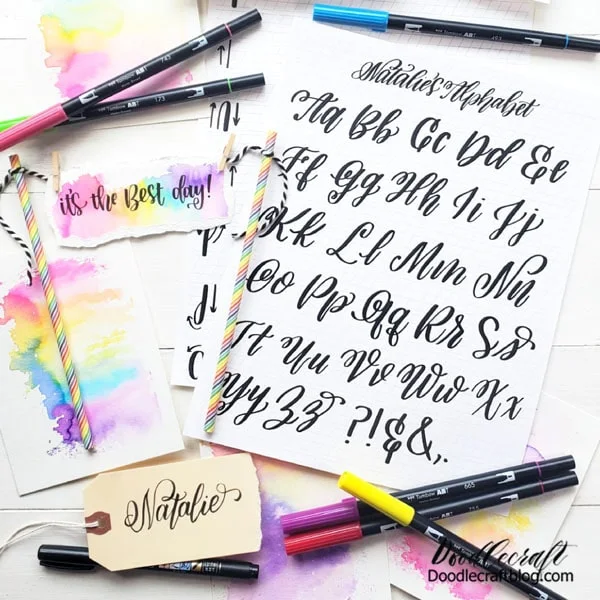 Natalie's Alphabet
Aa Bb Cc Dd Ee
Ff Gg Hh Ii Jj
Kk Ll Mm Nn
Oo Pp Qq Rr Ss
Tt Uu Vv Ww Xx
Yy Zz ?!&&,.
it's the Best day!
Natalie
Tombow ABT
743
Tombow ABT
173
Tombow ABT
Tombow ABT
665
Tombow ABT
Doodlecraft
Doodlecraftblog.com